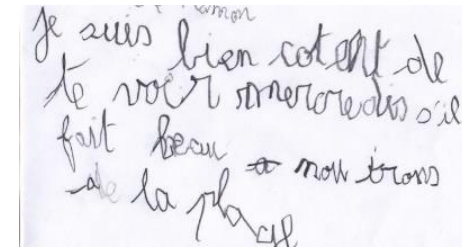 Je suis bien cotent de
te voir mercredis s'il
fait beau a nou irons
a de la plage